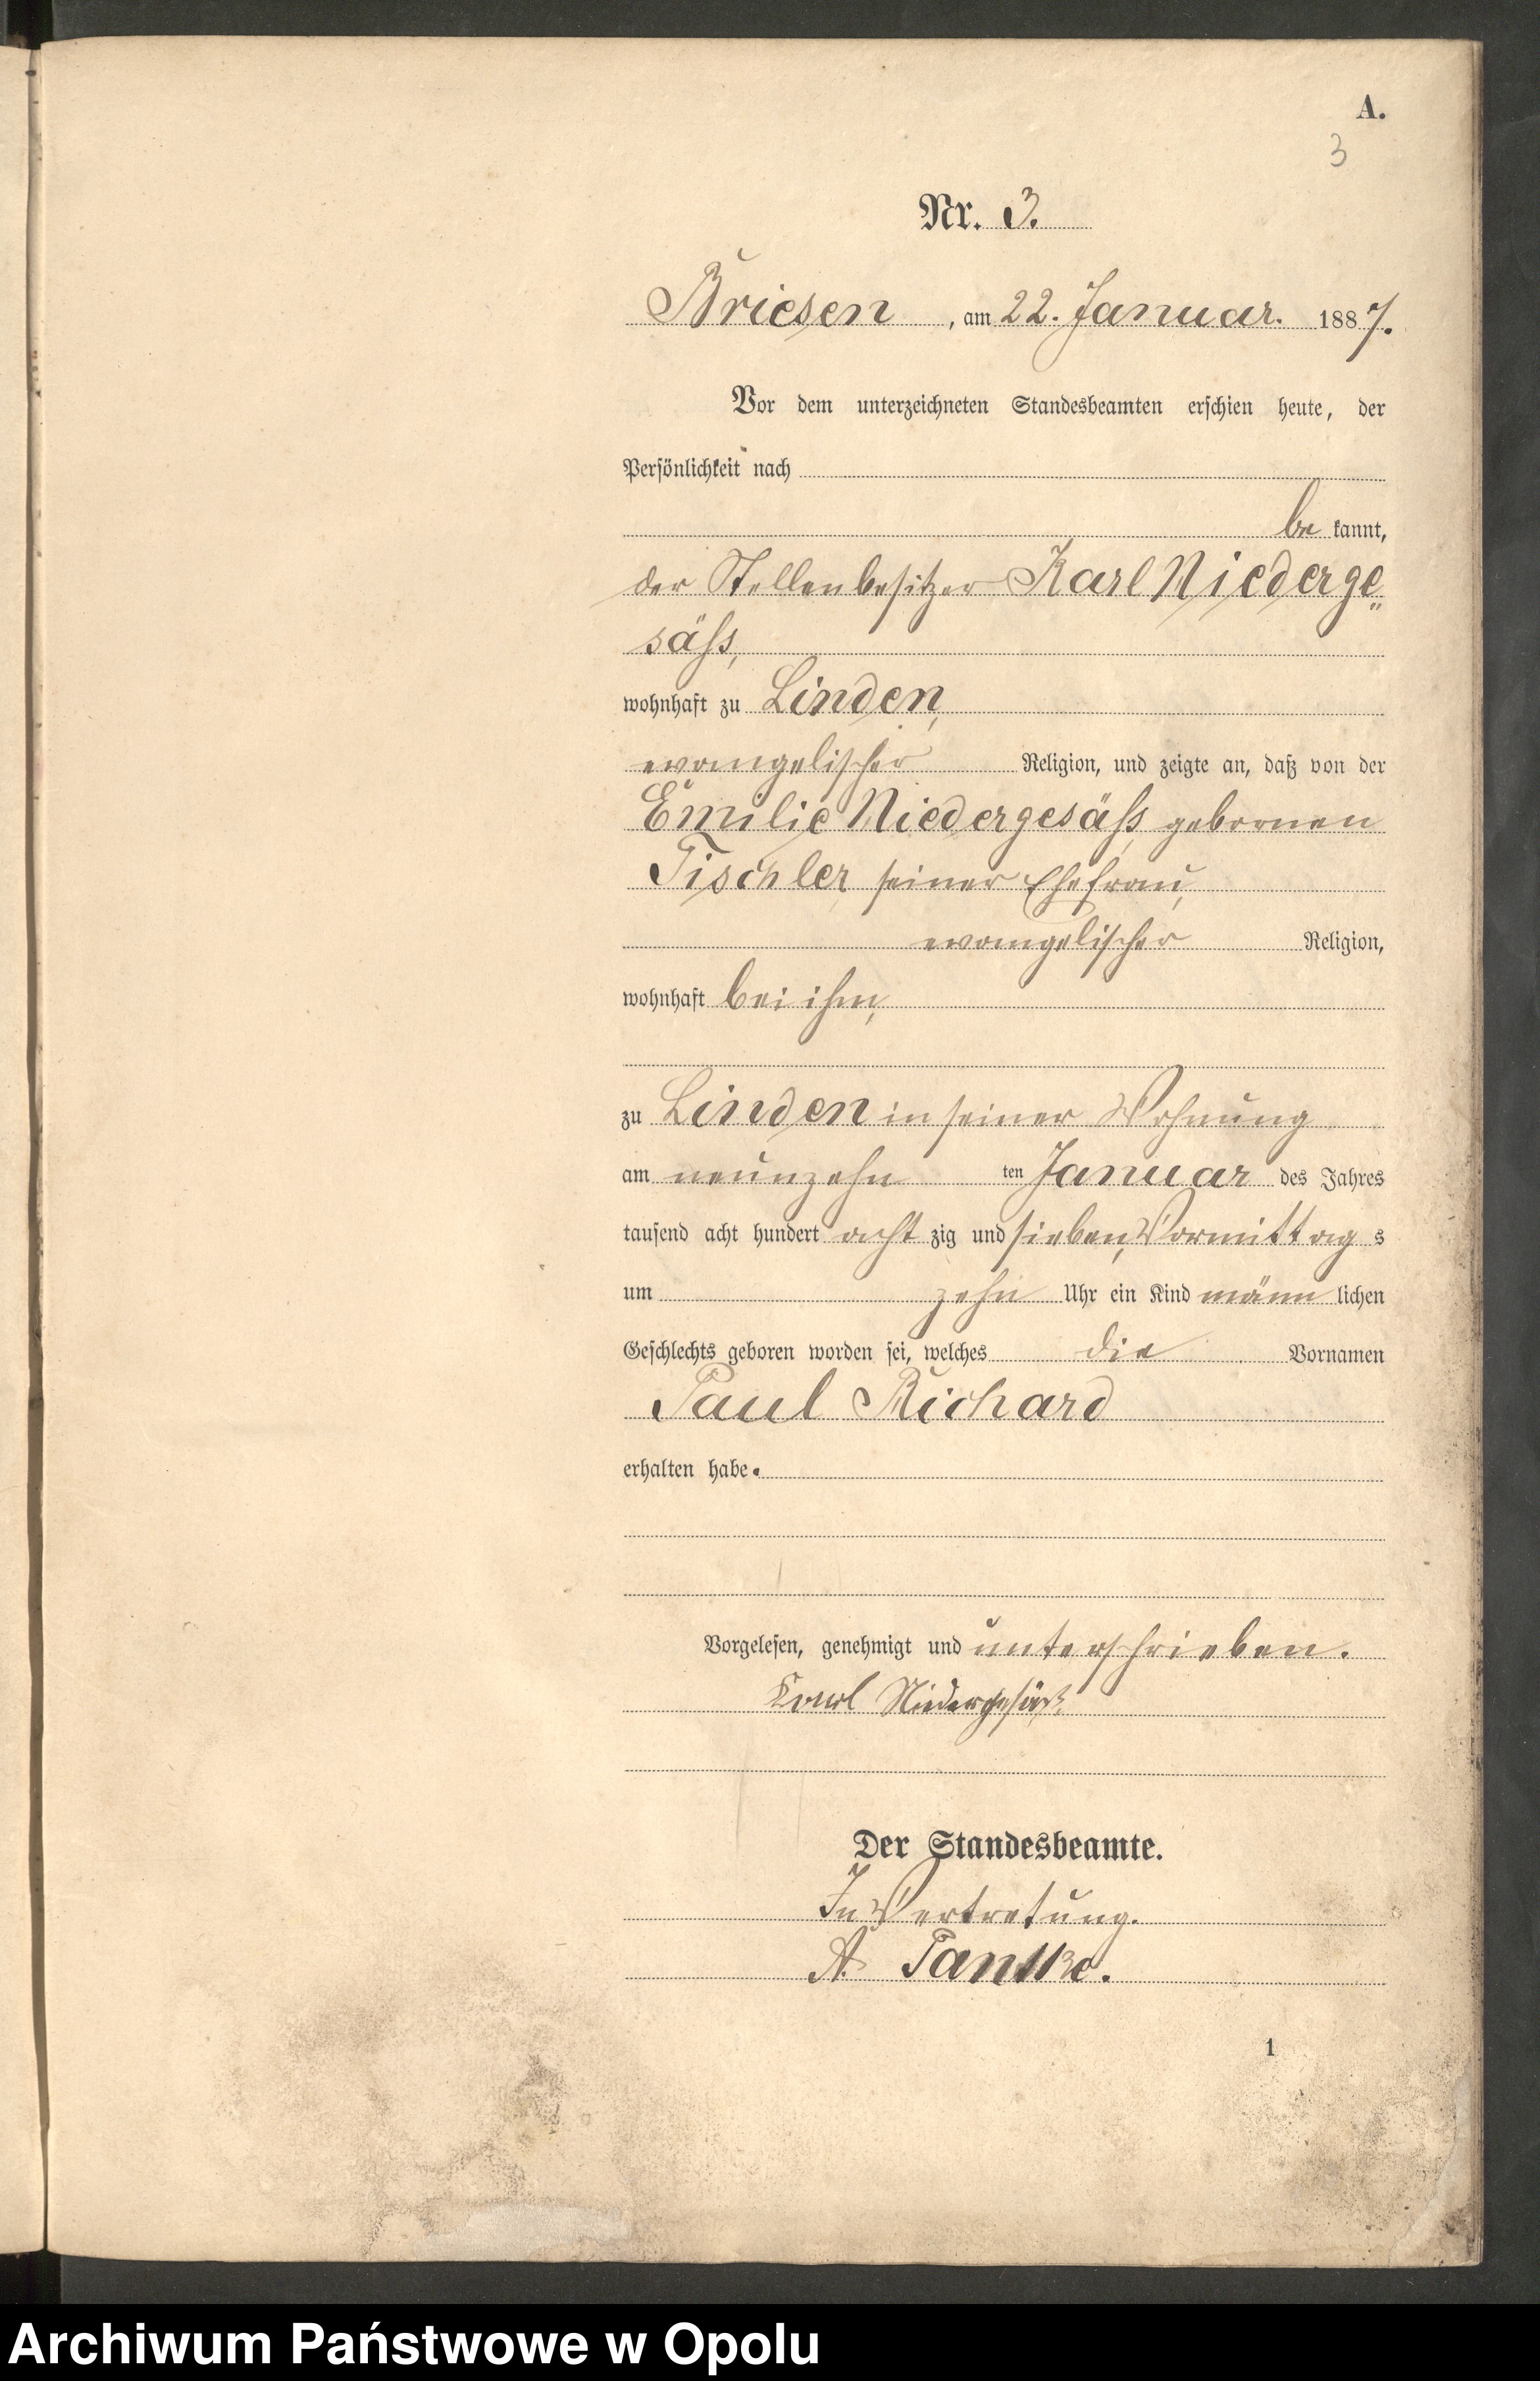 A.
3
Nr. 3.
Briesen, am 22. Januar. 1887.
Vor dem unterzeichneten Standesbeamten erschien heute, der
Persönlichkeit nach
be kannt,
der Stellenbesitzer Karl Niederge„
säſs,
wohnhaft zu Linden,
evangelischer Religion, und zeigte an, daß von der
Emilie Niedergesäſs, gebornen
Tischler, seiner Ehefrau,
evangelischer Religion,
wohnhaft bei ihm,
zu Linden in seiner Wohnung
am neunzehn ten Januar des Jahres
tausend acht hundert acht zig und sieben, Vormittag s
um zehn Uhr ein Kind männ lichen
Geschlechts geboren worden sei, welches die Vornamen
Paul Richard
erhalten habe.
Vorgelesen, genehmigt und unterschrieben.
Karl Niedergesäß
Der Standesbeamte.
In Vertretung.
A.
1
Archiwum Państwowe w Opolu